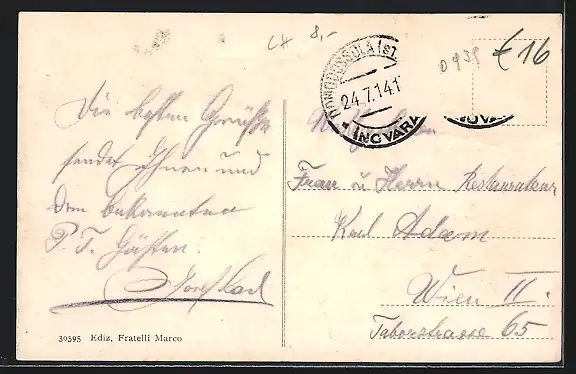 CH 8,-
0939
€16
DOMODOSSOLA (ST
24.7.14 1
(NOVARA
Die besten Grüße
sendet Ihnen und
den bekannten
P. T. Gästen.
Josef
Frau u Herrn Restaurateur
Karl Adam
Wien II.
Taborstrasse 65
30595 Ediz. Fratelli Marco